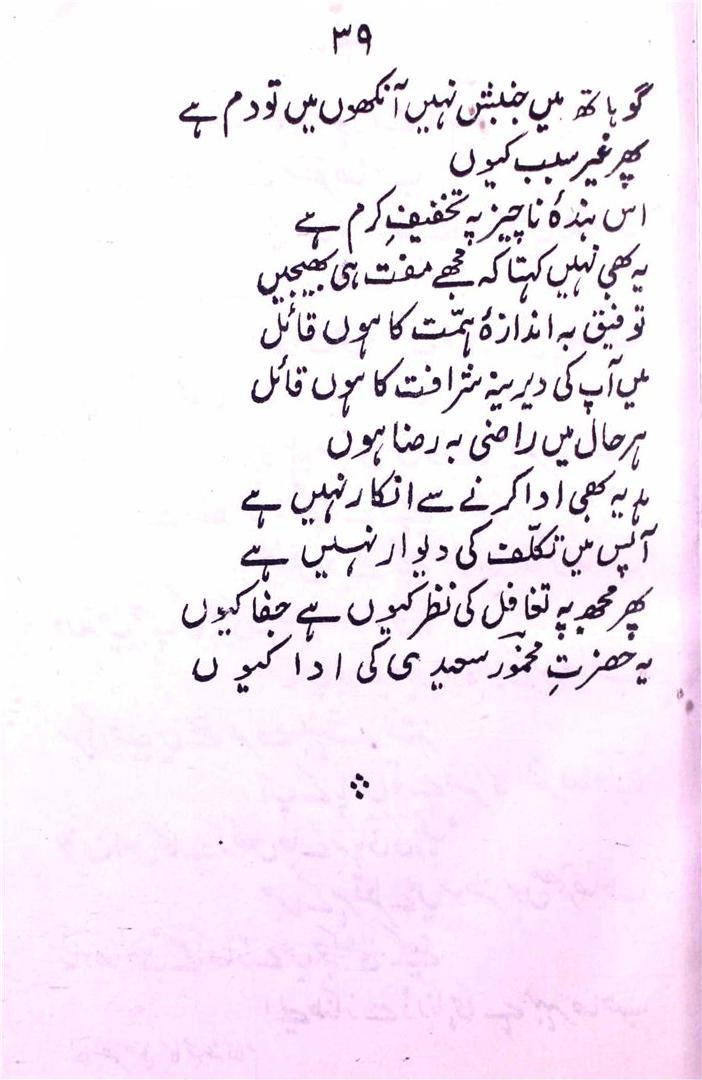 ۳۹
گو ہاتھ میں جنبش نہیں آنکھوں میں تو دم ہے
پھر غیر سبب کیوں
اس بندۂ ناچیز پہ تخفیفِ کرم ہے
یہ بھی نہیں کہتا کہ مجھے مفت ہی بھیجیں
توفیق بہ اندازۂ ہمّت کا ہوں قائل
میں آپ کی دیرینہ شرافت کا ہوں قائل
ہر حال میں راضی بہ رضا ہوں
ہدیہ بھی ادا کرنے سے انکار نہیں ہے
آپس میں تکلّف کی دیوار نہیں ہے
پھر مجھ پہ تغافل کی نظر کیوں ہے جفا کیوں
یہ حضرتِ مخمورؔ سعیدی کی ادا کیوں